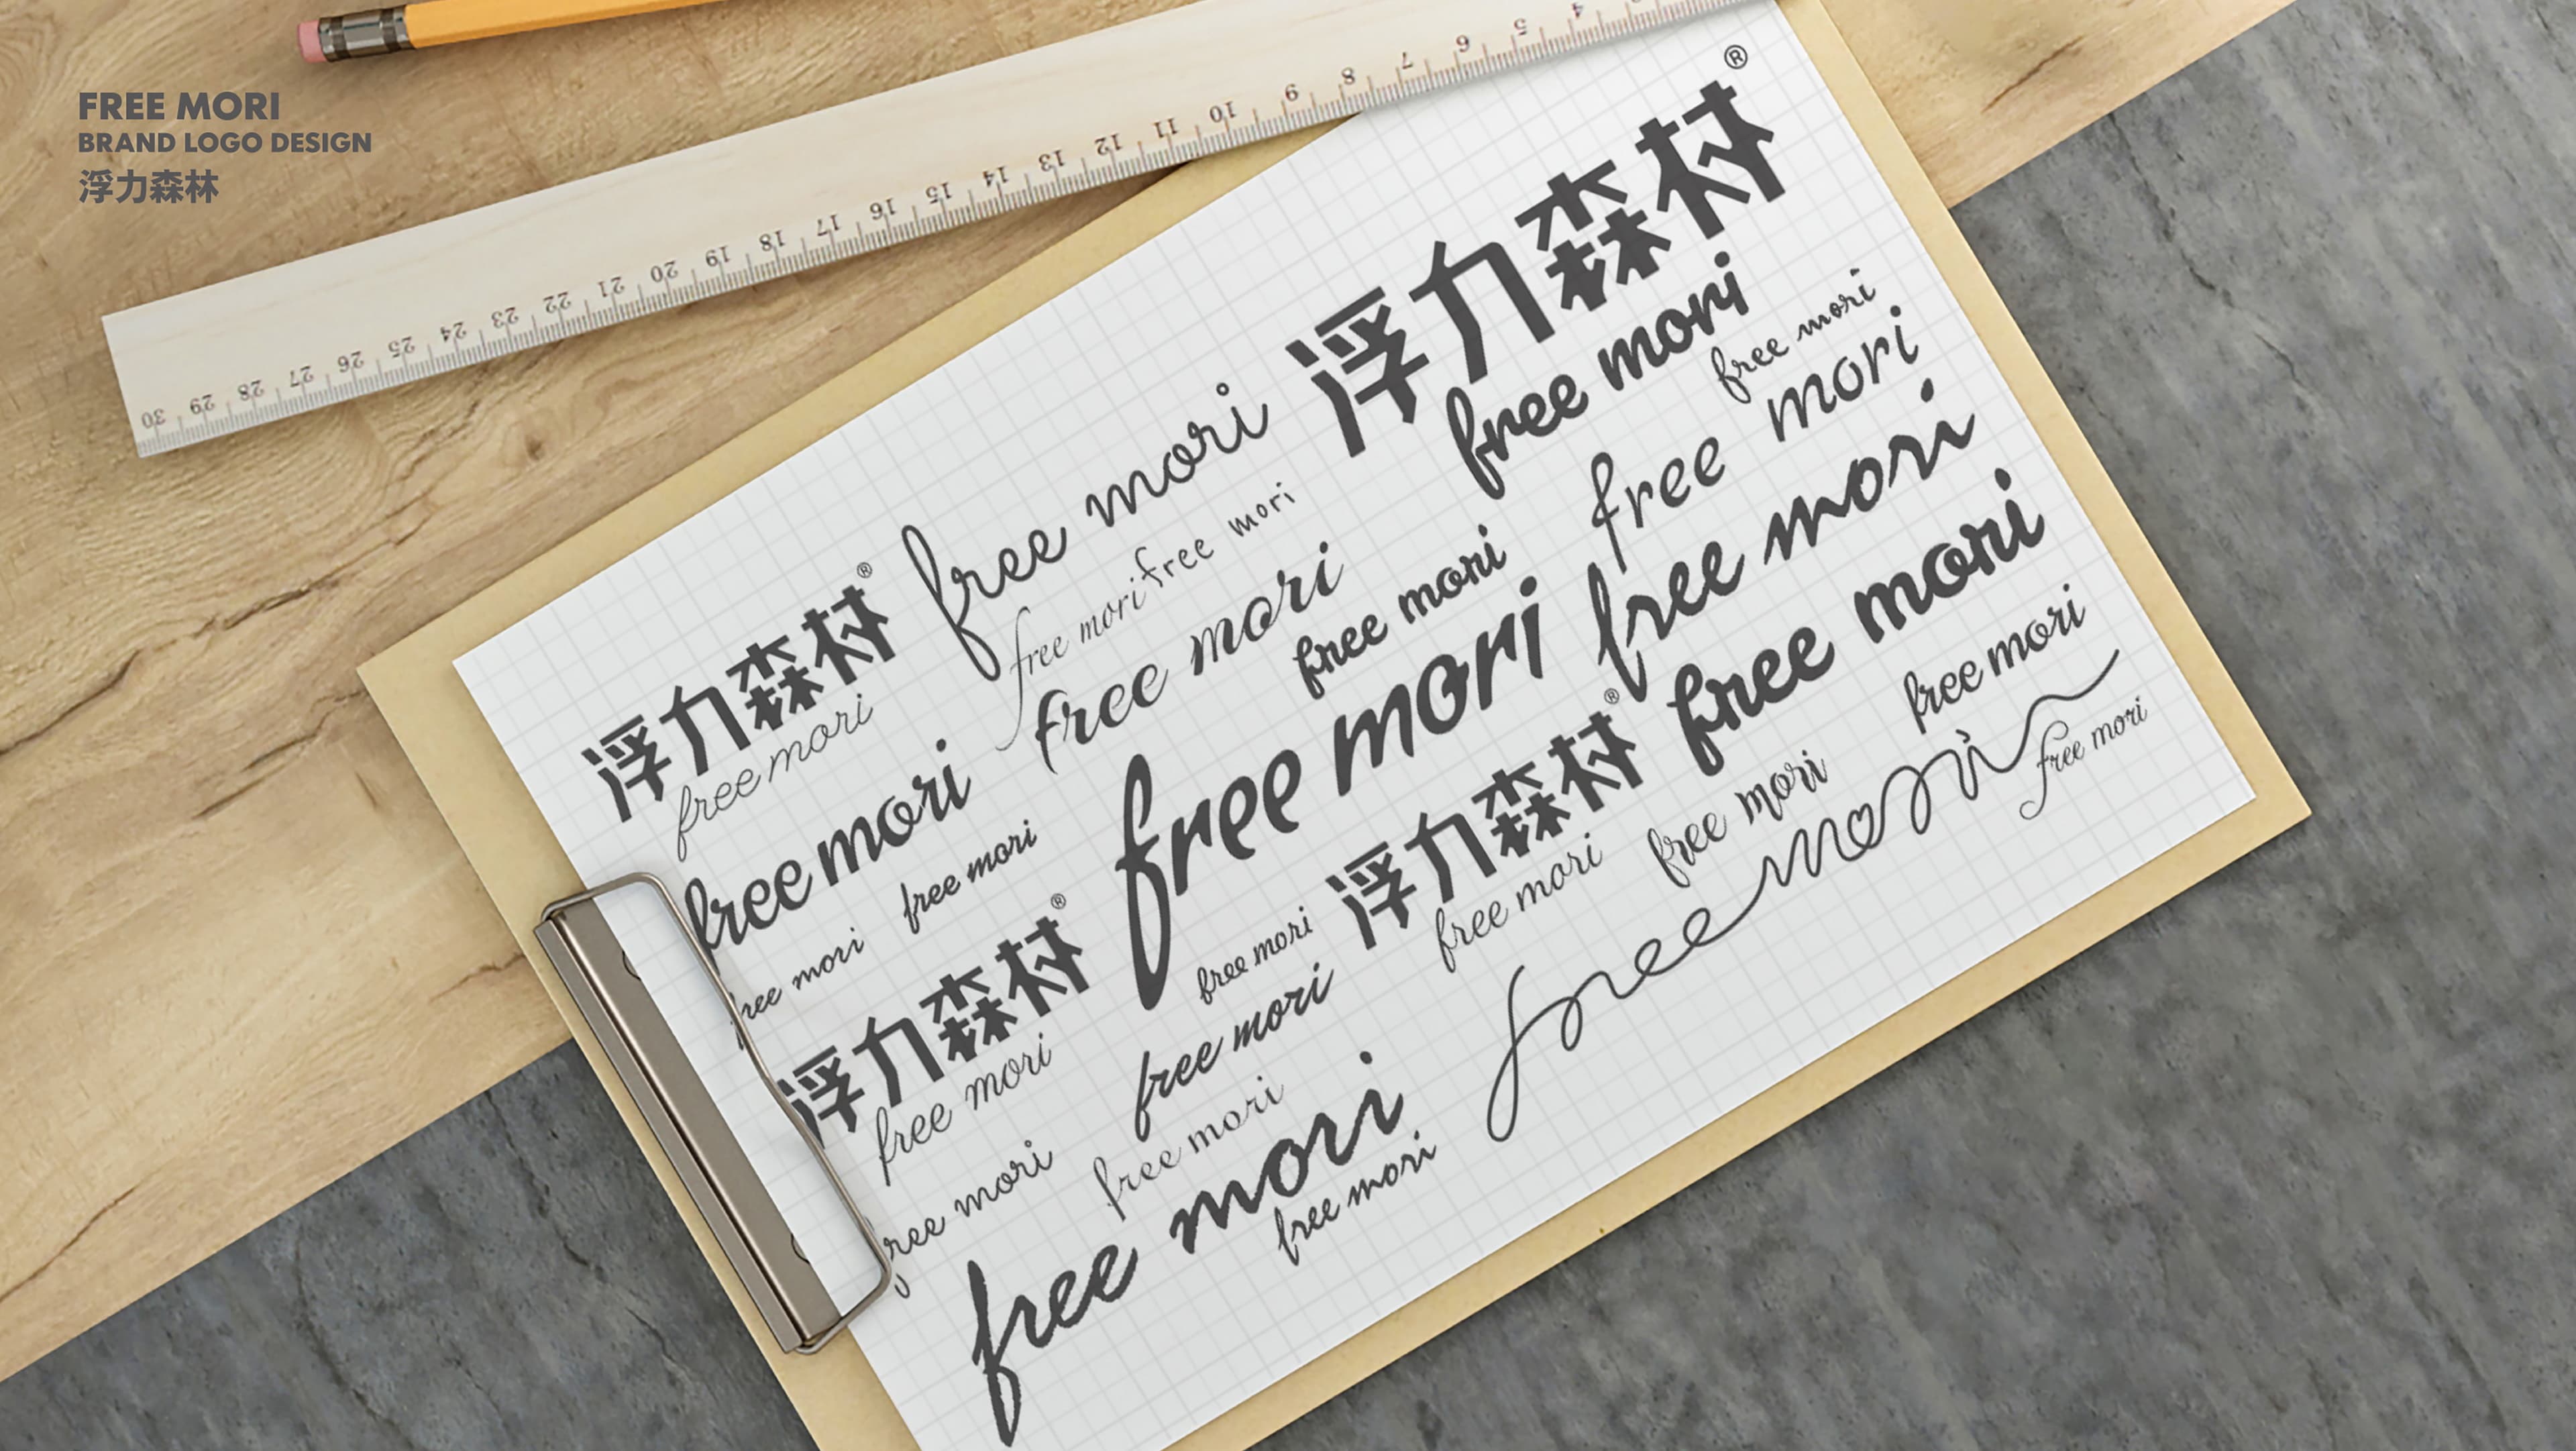 FREE MORI
BRAND LOGO DESIGN
浮力森林
30 29 28 27 26 25 24 23 22 21 20 19 18 17 16 15 14 13 12 11 10 9 8 7 6 5 4
浮力森林®
free mori
free mori
free mori
free mori
浮力森林®
free mori
free mori
free mori
free mori
free mori
free mori
free mori
free mori
free mori
free mori
free mori
free mori
free mori
浮力森林®
free mori
free mori
free mori
free mori
free mori
free mori
浮力森林®
free mori
free mori
free mori
free mori